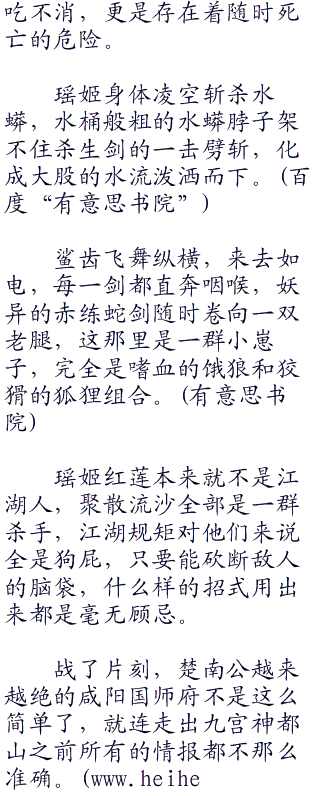 吃不消，更是存在着随时死
亡的危险。
瑶姬身体凌空斩杀水
蟒，水桶般粗的水蟒脖子架
不住杀生剑的一击劈斩，化
成大股的水流泼洒而下。(百
度“有意思书院”)
鲨齿飞舞纵横，来去如
电，每一剑都直奔咽喉，妖
异的赤练蛇剑随时卷向一双
老腿，这那里是一群小崽
子，完全是嗜血的饿狼和狡
猾的狐狸组合。(有意思书
院)
瑶姬红莲本来就不是江
湖人，聚散流沙全部是一群
杀手，江湖规矩对他们来说
全是狗屁，只要能砍断敌人
的脑袋，什么样的招式用出
来都是毫无顾忌。
战了片刻，楚南公越来
越绝的咸阳国师府不是这么
简单了，就连走出九宫神都
山之前所有的情报都不那么
准确。(www.heihe